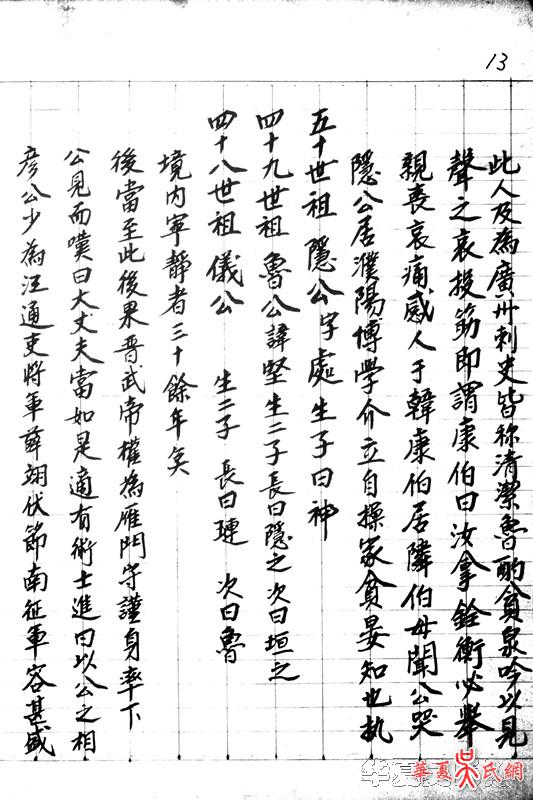 13
彦公少為江通吏將軍薛翊伏節南征軍容甚盛
公見而嘆曰大丈夫當如是適有術士進曰以公之相
後當至此後果晋武帝權為雁門守謹身率下
境内寧靜者三十餘年矣
四十八世祖 儀公 生二子 長曰璉 次曰魯
四十九世祖 魯公諱堅生二子長曰隱之次曰垣之
五十世祖 隱公字處生子曰神
隱公居濮陽博學介立自操家貧晏知也执
親丧哀痛感人于韓康伯居隣伯母聞公哭
聲之哀投筯即謂康伯曰汝拿銓衡必舉
此人及為廣州刺史皆称清潔魯酌貪泉吟以見
華夏吳氏網